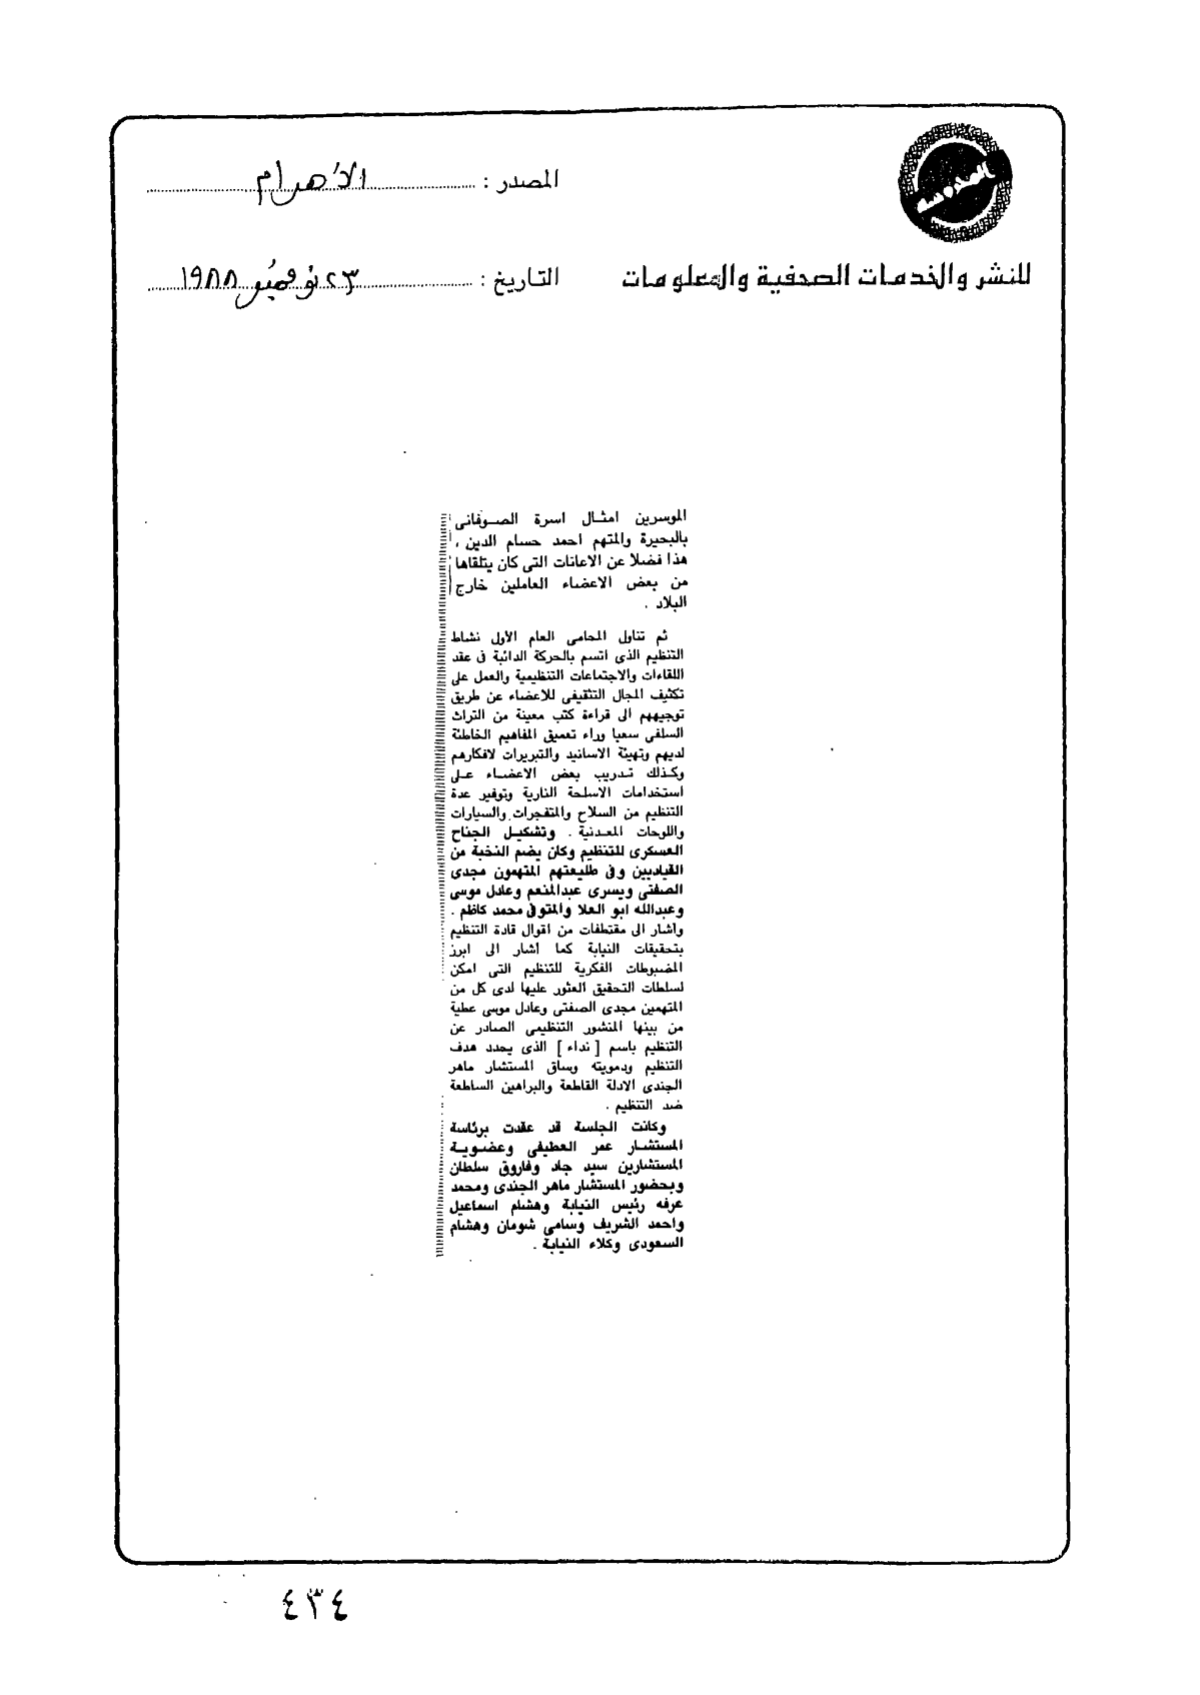 المصدر : الأهرام
للنشر والخدمات الصحفية والمعلومات
التاريخ : ٢٣ نوفمبر ١٩٨٨
الموسرين امثال اسرة الصوفانى
بالبحيرة والمتهم احمد حسام الدين .
هذا فضلا عن الاعانات التى كان يتلقاها
من بعض الاعضاء العاملين خارج
البلاد .
ثم تناول المحامى العام الأول نشاط
التنظيم الذى اتسم بالحركة الدائبة فى عقد
اللقاءات والاجتماعات التنظيمية والعمل على
تكثيف المجال التثقيفى للاعضاء عن طريق
توجيههم الى قراءة كتب معينة من التراث
السلفى سعيا وراء تعميق المفاهيم الخاطئة
لديهم وتهيئة الاسانيد والتبريرات لافكارهم
وكذلك تدريب بعض الاعضاء على
استخدامات الاسلحة النارية وتوفير عدة
التنظيم من السلاح والمتفجرات والسيارات
واللوحات المعدنية . وتشكيل الجناح
العسكرى للتنظيم وكان يضم النخبة من
القياديين وفى طليعتهم المتهمون مجدى
الصفتى ويسرى عبدالمنعم وعادل موسى
وعبدالله ابو العلا والمتوفى محمد كاظم .
وأشار الى مقتطفات من اقوال قادة التنظيم
بتحقيقات النيابة كما أشار الى ابرز
المضبوطات الفكرية للتنظيم التى امكن
لسلطات التحقيق العثور عليها لدى كل من
المتهمين مجدى الصفتى وعادل موسى عطية
من بينها المنشور التنظيمى الصادر عن
التنظيم باسم [ نداء ] الذى يحدد هدف
التنظيم ودمويته وساق المستشار ماهر
الجندى الادلة القاطعة والبراهين الساطعة
ضد التنظيم .
وكانت الجلسة قد عقدت برئاسة
المستشار عمر العطيفى وعضوية
المستشارين سيد جاد وفاروق سلطان
وبحضور المستشار ماهر الجندى ومحمد
عرفه رئيس النيابة وهشام اسماعيل
واحمد الشريف وسامى شومان وهشام
السعودى وكلاء النيابة .
٤٣٤